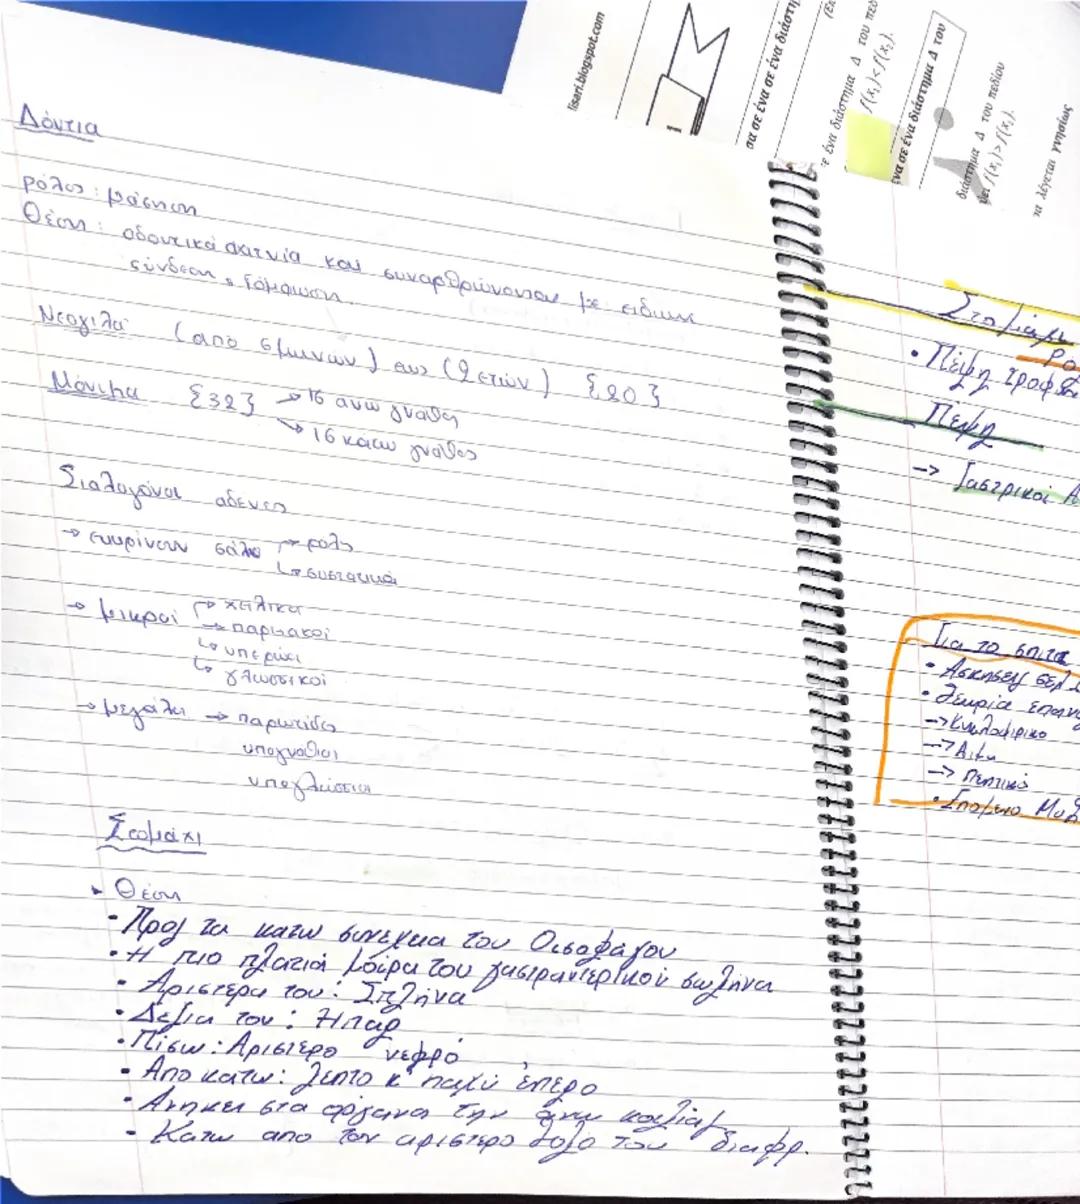 Δόντια
ρόλος: μάσηση
Θέση: οδοντικά φατνία και συναρθρώνονται με ειδική
σύνδεση, γόμφωση.
Νεογιλά (από 6μηνών) εως (2 ετών) {20}
Μόνιμα {32} → 16 ανω γνάθος
→ 16 κατω γνάθος
Σιαλογόνοι αδένες
→ εκκρίνουν σάλιο → ρολς
↳ συστατικά
→ μικροί → χειλικοί
→ παρειακοί
↳ υπερώιοι
↳ γλωσσικοί
→ μεγάλοι → παρωτίδες
υπογνάθιοι
υπογλώσσιοι
Στομάχι
Θέση
- Προς τα κατω συνεχεια του Οισοφάγου
· Η πιο πλατιά μοίρα του γαστρεντερικού σωλήνα
- Αριστερα του: Σπλήνα
· Δεξια του: Ηπαρ
· Πίσω: Αριστερο νεφρό
- Απο κατω: λεπτο κ' παχύ έντερο
- Ανηκει στα οργανα της άνω κοιλίας
- Κατω απο τον αριστερο θολο του διαφρ.
lisari.blogspot.com
σα σε ένα διάστη
ε ένα διάστημα Δ του πεδ
f(x₁)<f(x₂).
ένα σε ένα διάστημα Δ του
διάστημα Δ του πεδίου
ύει f(x₁)>f(x₂).
τα λέγεται γνησίως
Στομάχι
Ρο
• Πέψη τροφ
Πέψη
-> Γαστρικοί Α
Για το σπίτι
• Ασκησεις σελ
• Θεωρία επαν
-> Κυκλοφορικο
-> Αιμα
-> Πεπτικό
• Επομενο Μαθ